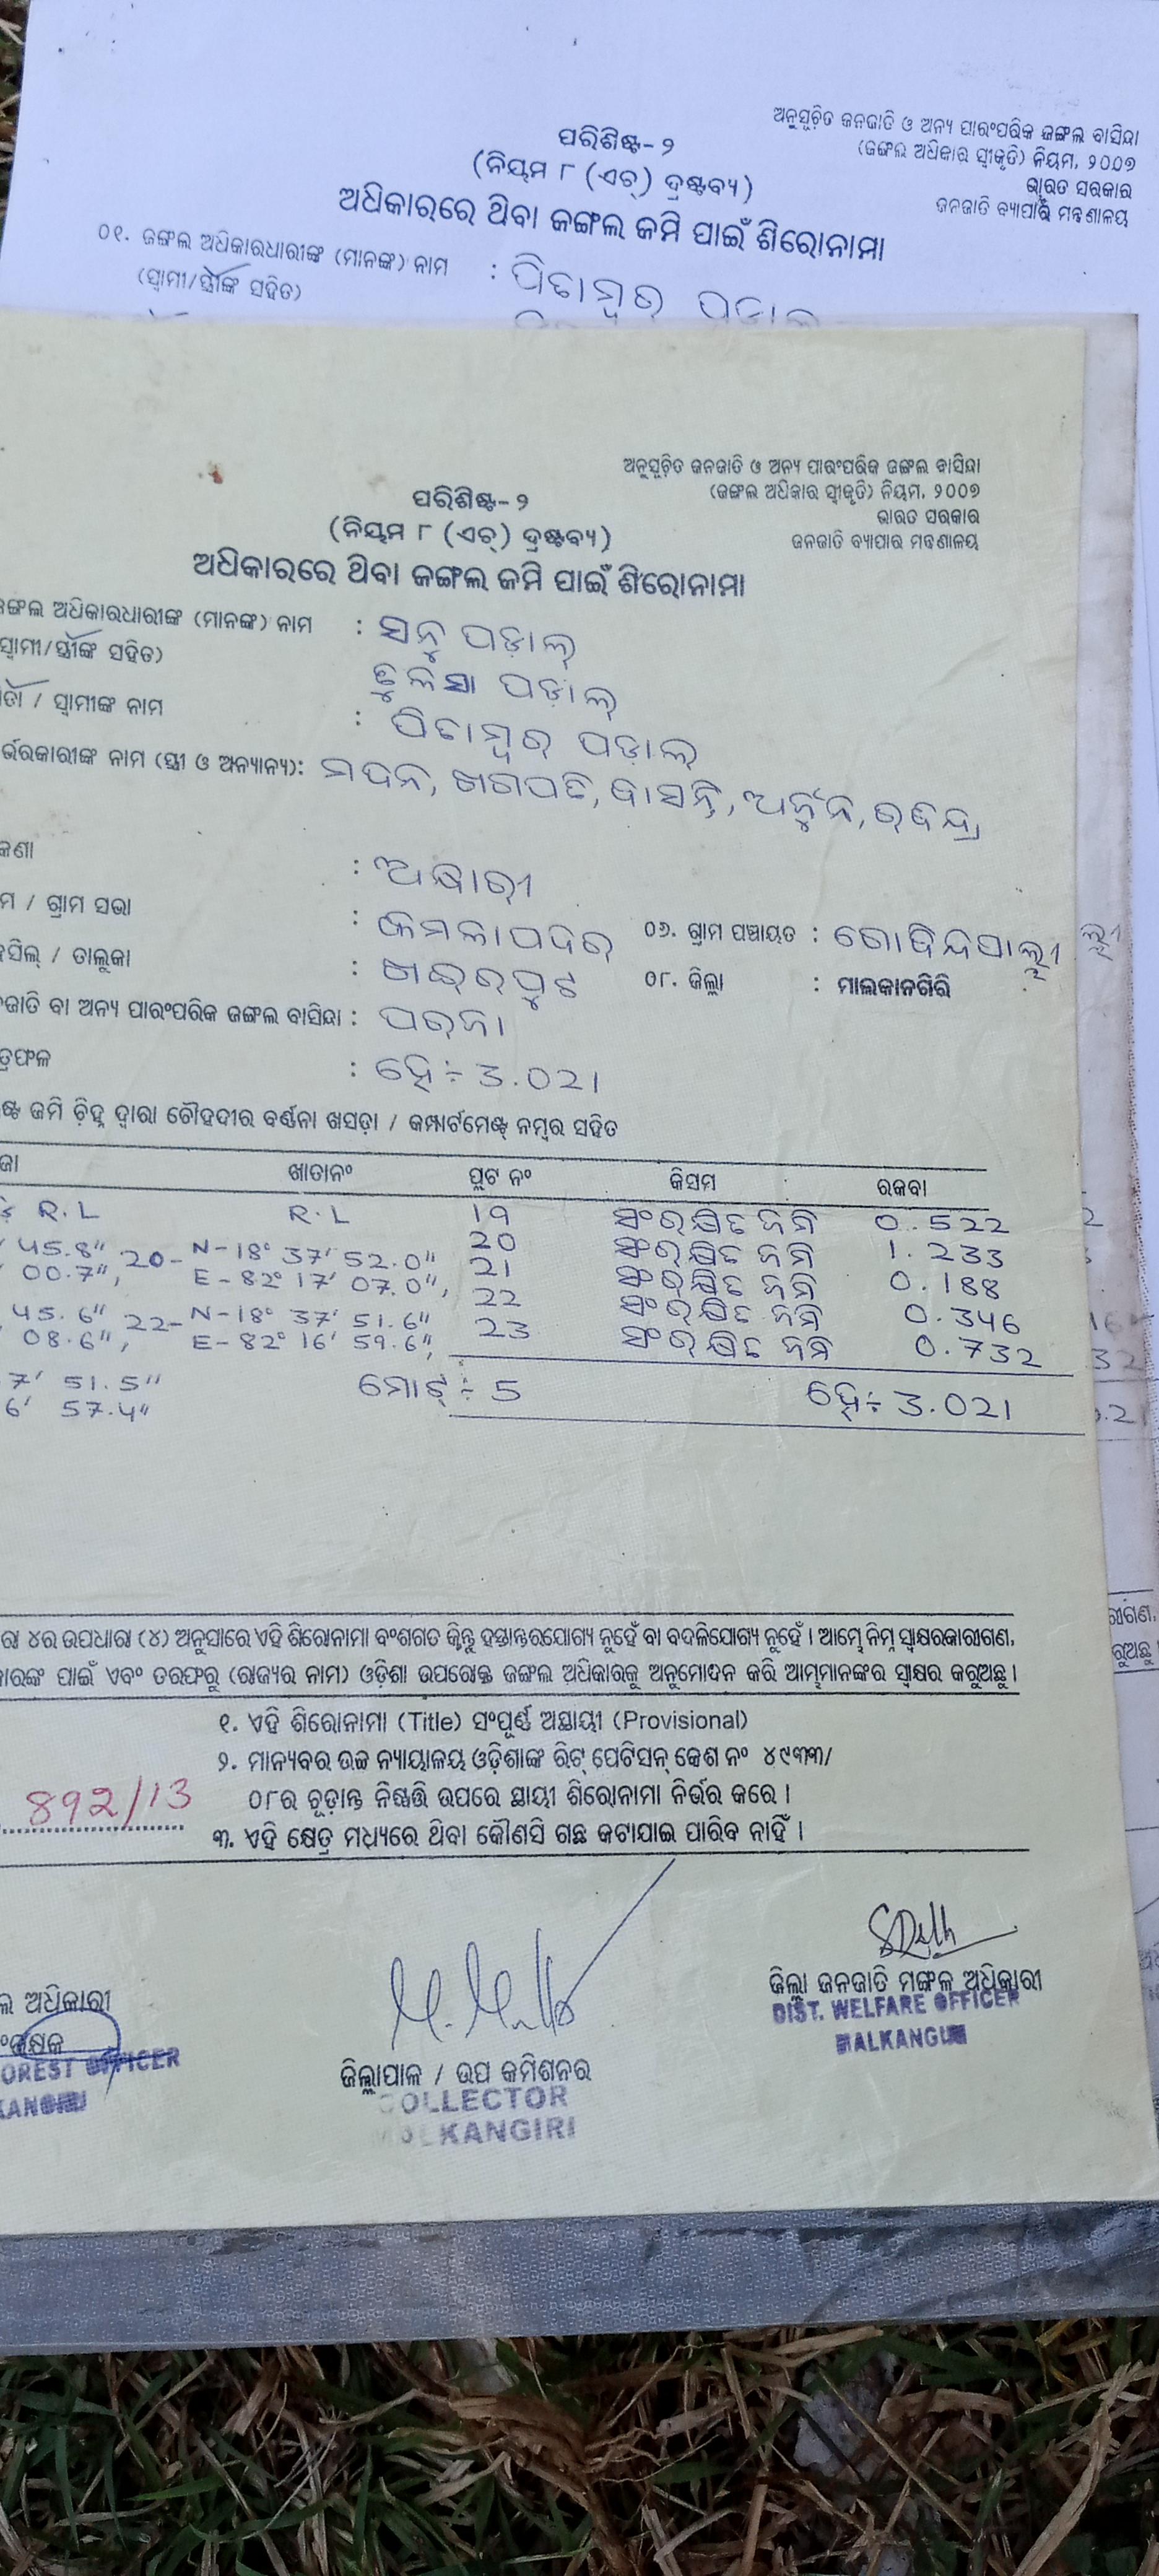 ଅନୁସୂଚିତ ଜନଜାତି ଓ ଅନ୍ୟ ପାରଂପରିକ ଜଙ୍ଗଲ ବାସିନ୍ଦା
(ଜଙ୍ଗଲ ଅଧିକାର ସ୍ୱୀକୃତି) ନିୟମ, ୨୦୦୭
ଭାରତ ସରକାର
ଜନଜାତି ବ୍ୟାପାର ମନ୍ତ୍ରଣାଳୟ
ପରିଶିଷ୍ଟ-୨
(ନିୟମ ୮ (ଏଚ୍) ଦ୍ରଷ୍ଟବ୍ୟ)
ଅଧିକାରରେ ଥିବା ଜଙ୍ଗଲ ଜମି ପାଇଁ ଶିରୋନାମା
୦୧. ଜଙ୍ଗଲ ଅଧିକାରଧାରୀଙ୍କ (ମାନଙ୍କ) ନାମ : ପିତାମ୍ବର ପଡ଼ାଲ
(ସ୍ୱାମୀ/ସ୍ତ୍ରୀଙ୍କ ସହିତ)
ଅନୁସୂଚିତ ଜନଜାତି ଓ ଅନ୍ୟ ପାରଂପରିକ ଜଙ୍ଗଲ ବାସିନ୍ଦା
(ଜଙ୍ଗଲ ଅଧିକାର ସ୍ୱୀକୃତି) ନିୟମ, ୨୦୦୭
ଭାରତ ସରକାର
ଜନଜାତି ବ୍ୟାପାର ମନ୍ତ୍ରଣାଳୟ
ପରିଶିଷ୍ଟ-୨
(ନିୟମ ୮ (ଏଚ୍) ଦ୍ରଷ୍ଟବ୍ୟ)
ଅଧିକାରରେ ଥିବା ଜଙ୍ଗଲ ଜମି ପାଇଁ ଶିରୋନାମା
ଙ୍ଗଲ ଅଧିକାରଧାରୀଙ୍କ (ମାନଙ୍କ) ନାମ : ସନୁ ପଡ଼ାଲ୍
ସ୍ୱାମୀ/ସ୍ତ୍ରୀଙ୍କ ସହିତ) ତୁଳସା ପଡ଼ାଲ୍
ତା / ସ୍ୱାମୀଙ୍କ ନାମ : ପିତାମ୍ବର ପଡ଼ାଲ୍
ର୍ଭରକାରୀଙ୍କ ନାମ (ସ୍ତ୍ରୀ ଓ ଅନ୍ୟାନ୍ୟ): ମଦନ, ଖଗପତି, ବାସନ୍ତି, ଅର୍ଜୁନ, ରବିନ୍ଦ୍ର
କଣା :
ମ / ଗ୍ରାମ ସଭା : କମଳାପଦର ୦୬. ଗ୍ରାମ ପଞ୍ଚାୟତ : ଗୋବିନ୍ଦପାଲ୍ଲୀ
ସିଲ୍ / ତାଲୁକା : ଖଇରପୁଟ ୦୮. ଜିଲ୍ଲା : ମାଲକାନଗିରି
ଜାତି ବା ଅନ୍ୟ ପାରଂପରିକ ଜଙ୍ଗଲ ବାସିନ୍ଦା : ପରଜା
ତ୍ରଫଳ : ହେ÷ 3.021
ଷ୍ଟ ଜମି ଚିହ୍ନ ଦ୍ୱାରା ଚୌହଦୀର ବର୍ଣ୍ଣନା ଖସଡ଼ା / କମ୍ପାର୍ଟମେଣ୍ଟ୍ ନମ୍ବର ସହିତ
ଜା ଖାତାନଂ ପ୍ଲଟ ନଂ କିସମ ରକବା
R.L R.L 19 ସଂରକ୍ଷିତ ଜମି 0.522
45.8" 20- N-18° 37' 52.0" 20 ସଂରକ୍ଷିତ ଜମି 1.233
00.7", E-82° 17' 07.0", 21 ସଂରକ୍ଷିତ ଜମି 0.188
45.6" 22- N-18° 37' 51.6" 22 ସଂରକ୍ଷିତ ଜମି 0.346
08.6", E-82° 16' 59.6", 23 ସଂରକ୍ଷିତ ଜମି 0.732
7' 51.5" ମୋଟ୍÷ 5 ହେ÷ 3.021
6' 57.4"
ରା ୪ର ଉପଧାରା (୪) ଅନୁସାରେ ଏହି ଶିରୋନାମା ବଂଶଗତ କିନ୍ତୁ ହସ୍ତାନ୍ତରଯୋଗ୍ୟ ନୁହେଁ ବା ବଦଳିଯୋଗ୍ୟ ନୁହେଁ । ଆମ୍ଭେ ନିମ୍ନ ସ୍ୱାକ୍ଷରକାରୀଗଣ,
ାରଙ୍କ ପାଇଁ ଏବଂ ତରଫରୁ (ରାଜ୍ୟର ନାମ) ଓଡ଼ିଶା ଉପରୋକ୍ତ ଜଙ୍ଗଲ ଅଧିକାରକୁ ଅନୁମୋଦନ କରି ଆମ୍ଭମାନଙ୍କର ସ୍ୱାକ୍ଷର କରୁଅଛୁ ।
୧. ଏହି ଶିରୋନାମା (Title) ସଂପୂର୍ଣ୍ଣ ଅସ୍ଥାୟୀ (Provisional)
୨. ମାନ୍ୟବର ଉଚ୍ଚ ନ୍ୟାୟାଳୟ ଓଡ଼ିଶାଙ୍କ ରିଟ୍ ପେଟିସନ୍ କେଶ ନଂ ୪୯୩୩/
892/13 ୦୮ର ଚୂଡ଼ାନ୍ତ ନିଷ୍ପତ୍ତି ଉପରେ ସ୍ଥାୟୀ ଶିରୋନାମା ନିର୍ଭର କରେ ।
୩. ଏହି କ୍ଷେତ୍ର ମଧ୍ୟରେ ଥିବା କୌଣସି ଗଛ କଟାଯାଇ ପାରିବ ନାହିଁ ।
ଲ ଅଧିକାରୀ
ଂରକ୍ଷକ
OREST OFFICER
ଜିଲ୍ଲାପାଳ / ଉପ କମିଶନର
COLLECTOR
MALKANGIRI
ଜିଲ୍ଲା ଜନଜାତି ମଙ୍ଗଳ ଅଧିକାରୀ
DIST. WELFARE OFFICER
MALKANGIRI